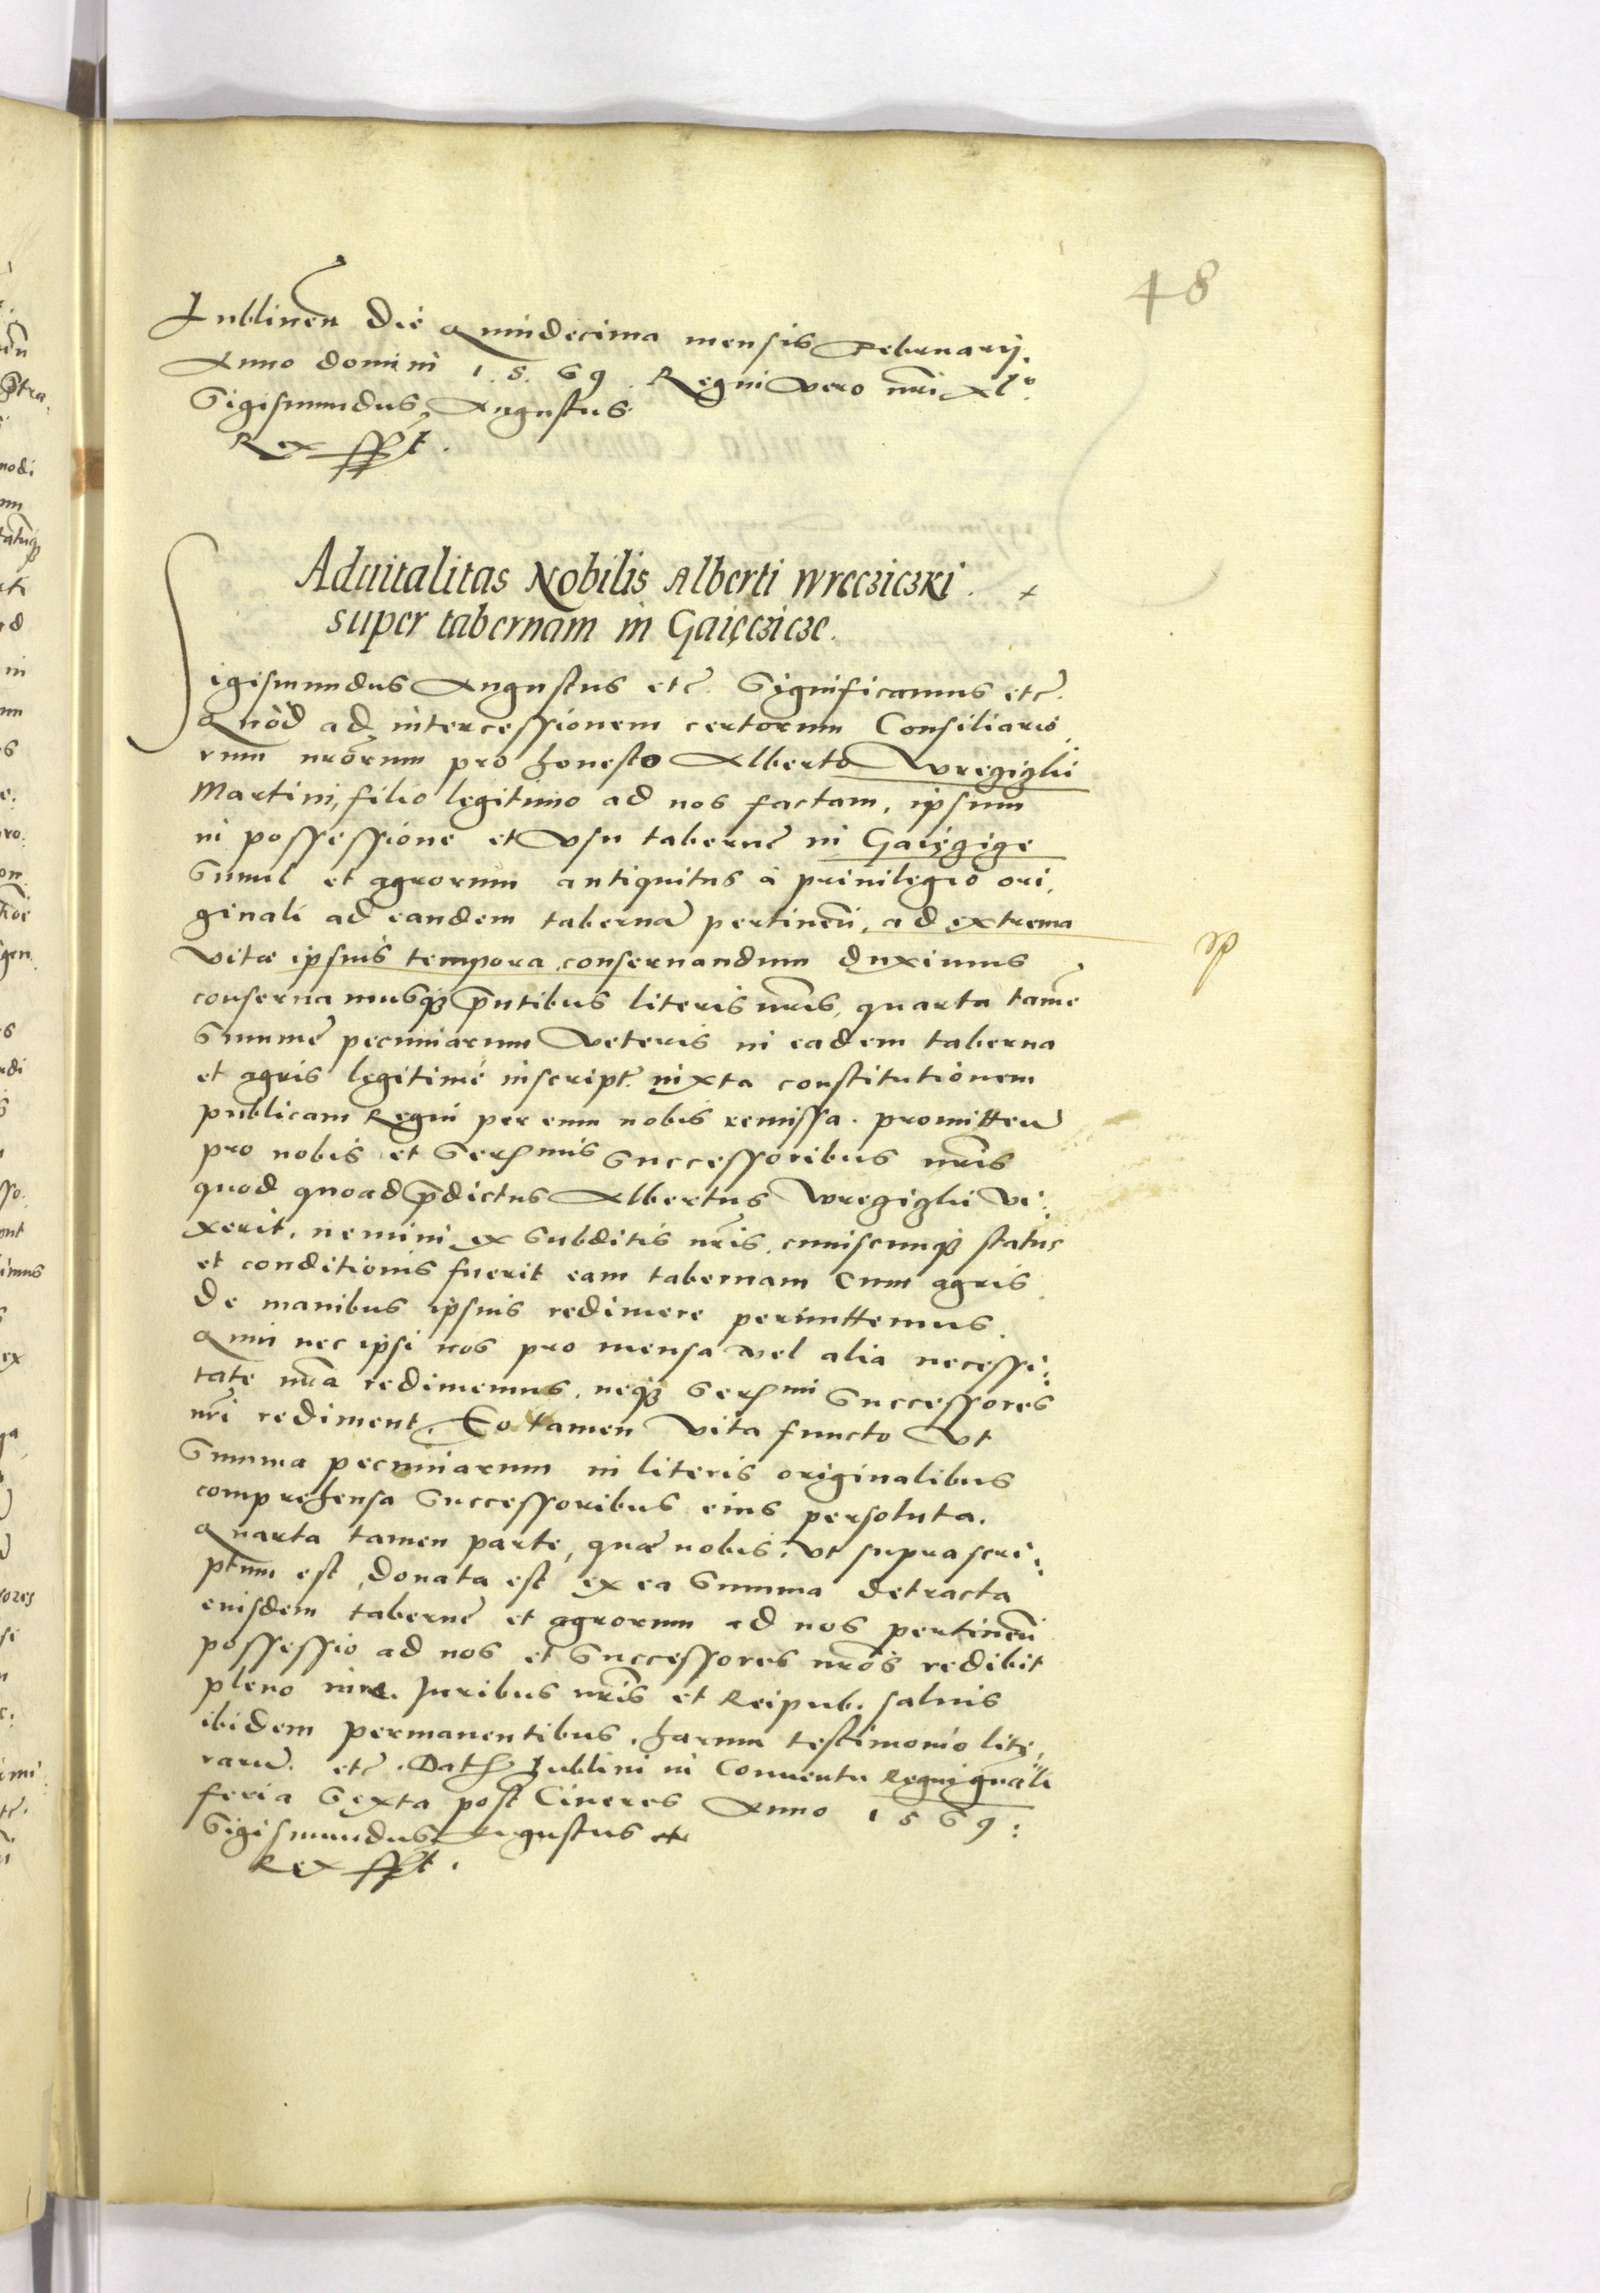 48
Lublineñ die Quindecima mensis Februarij.
Anno domini 1.5.69. Regni vero nrĩ xlº.
Sigismundus Augustus
Rex sspt.
Aduitalitas Nobilis Alberti Wrecziczki. +
super tabernam in Gaięczicze.
Sigismundus Augustus etc. Significamus etc.
Quòd ad intercessionem certorum Consiliario,
rum nrõrum pro honesto Alberto Wregiglii
Martini, filio legitimo ad nos factam, ipsum
in possessione et vsu tabernę in Gaięgige
Simul et agrorum antiquitus à priuilegio ori,
ginali ad eandem tabernã pertineñ, ad extrema
vitæ ipsius tempora conseruandum duximus
conseruamusq; p̃ntibus literis nrĩs, quarta tamẽ
Summę pecuniarum veteris in eadem taberna
et agris legitimè inscript. iuxta constitutionem
publicam Regni per eum nobis remissa. promitteñ
pro nobis et Serᵐⁱˢ Successoribus nrĩs
quod quoad p̃dictus Albertus Wregiglii vi:
xerit, nemini ex Subditis nrĩs, cuiuscunq; status
et conditionis fuerit eam tabernam cum agris
de manibus ipsius redimere permittemus.
Quin nec ipsi nos pro mensa vel alia necessi:
tate nrã redimemus, neq; Serᵐⁱ Successores
nrĩ rediment. Eo tamen vita functo vt
Summa pecuniarum in literis originalibus
comprehensa Successoribus eius persoluta.
Quarta tamen parte, quæ nobis, vt suprascri:
ptum est, donata est ex ea Summa detracta
eiusdem tabernę et agrorum ad nos pertineñ
possessio ad nos et Successores nrõs redibit
pleno iure. Juribus nrĩs et Reipub. saluis
ibidem permanentibus, harum testimonio lite,
rarũ. etc. Dat. Lublini in Conuentu Regni gnãli
feria Sexta post Cineres Anno 1569:
Sigismundus Augustus
Rex sspt.